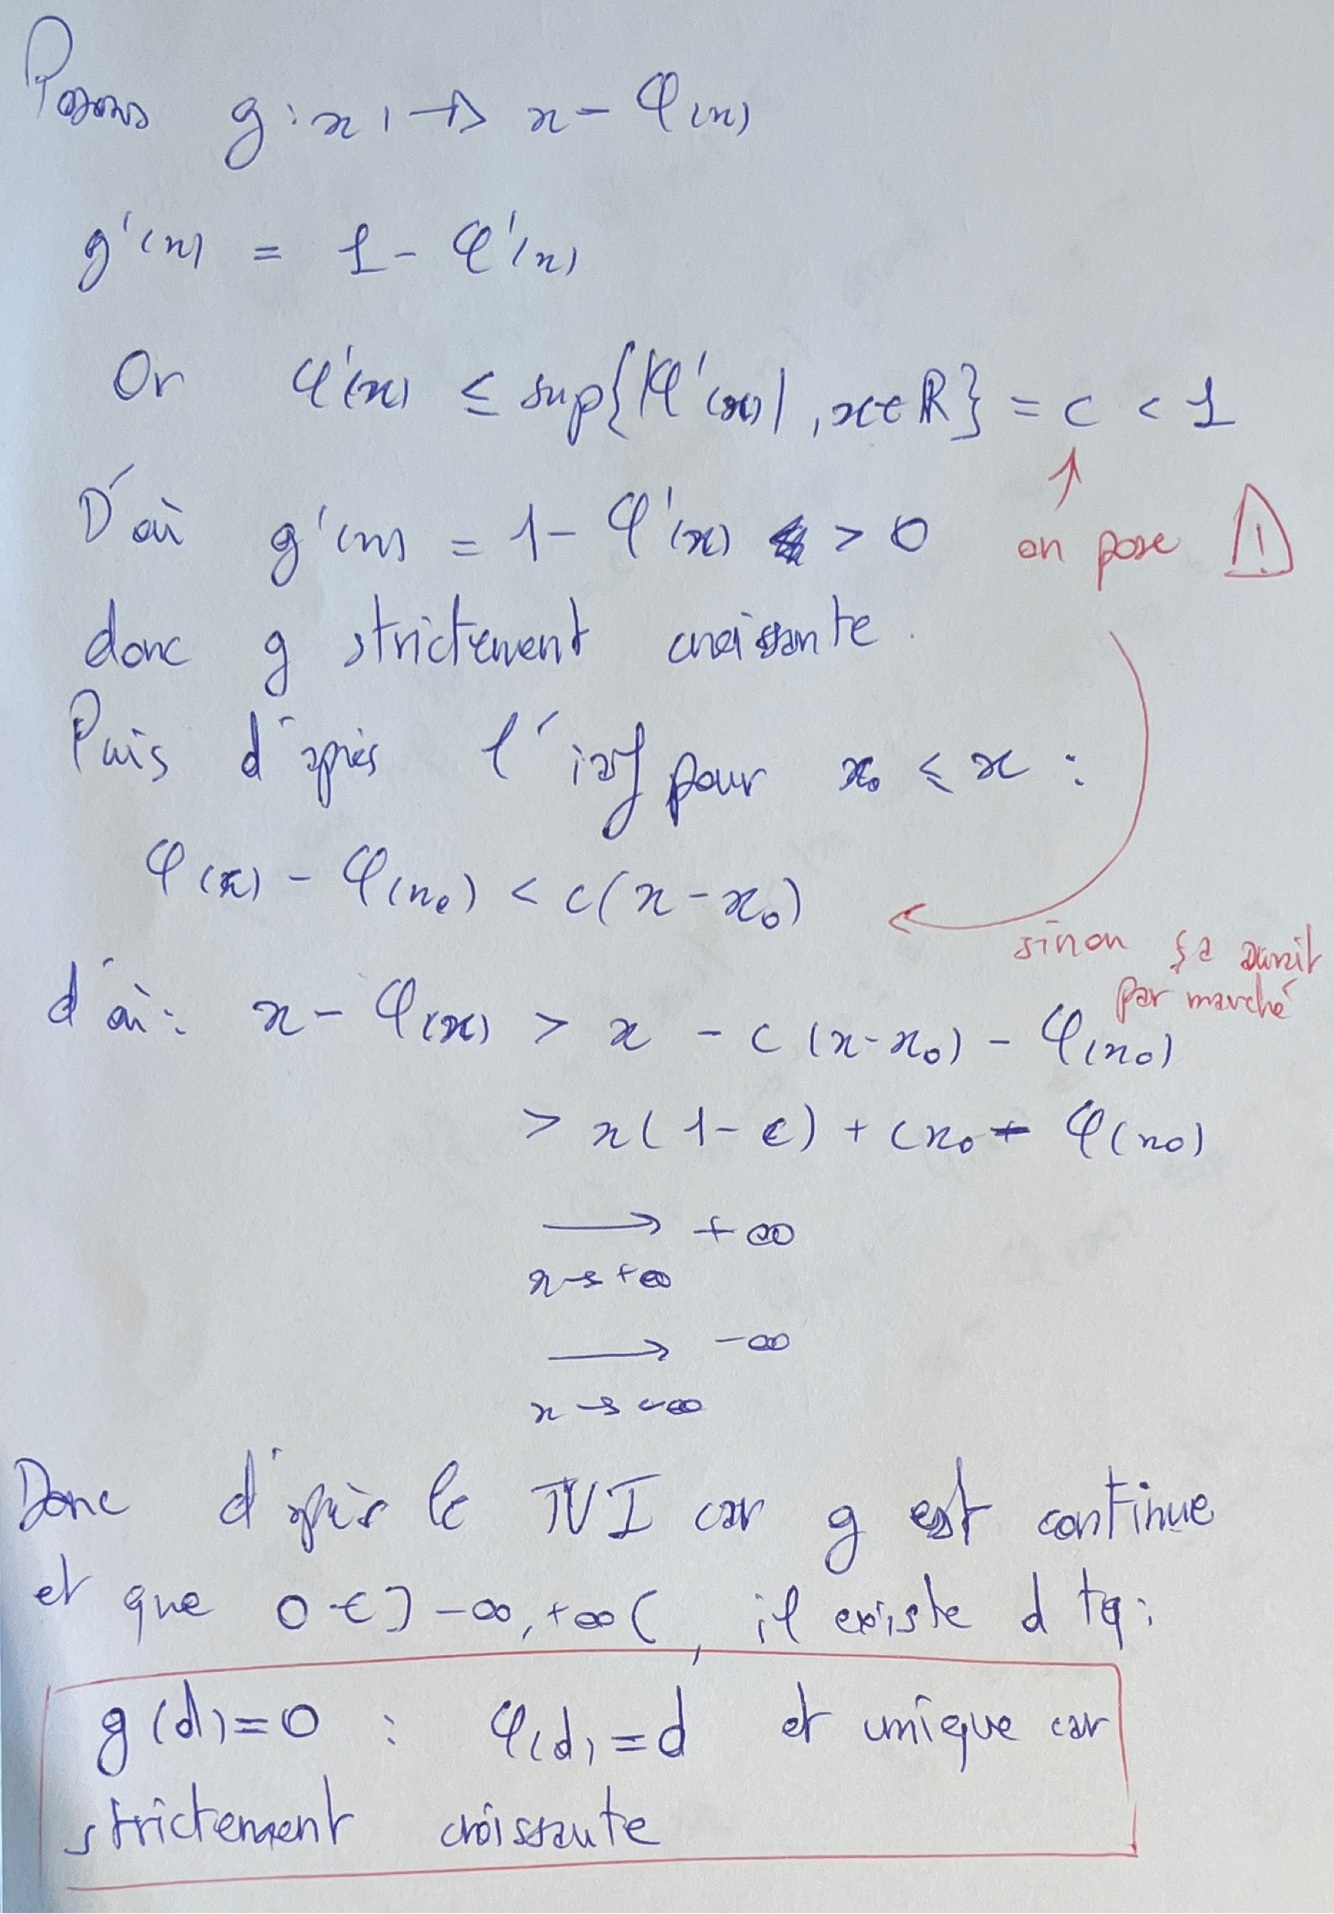 Posons g : x ↦ x - φ(x)
g'(x) = 1 - φ'(x)
Or φ'(x) ≤ sup{|φ'(x)|, x ∈ ℝ} = c < 1
↑
D'où g'(x) = 1 - φ'(x) > 0 on pose ⚠
donc g strictement croissante.
Puis d'après l'iaf pour x₀ ≤ x :
φ(x) - φ(x₀) < c(x - x₀)
sinon ça aurait
par marché
d'où : x - φ(x) > x - c(x - x₀) - φ(x₀)
> x(1 - c) + cx₀ - φ(x₀)
⟶ +∞
x→+∞
⟶ -∞
x→-∞
Donc d'après le TVI car g est continue
et que 0 ∈ ]-∞, +∞(, il existe d tq :
g(d) = 0 : φ(d) = d et unique car
strictement croissante